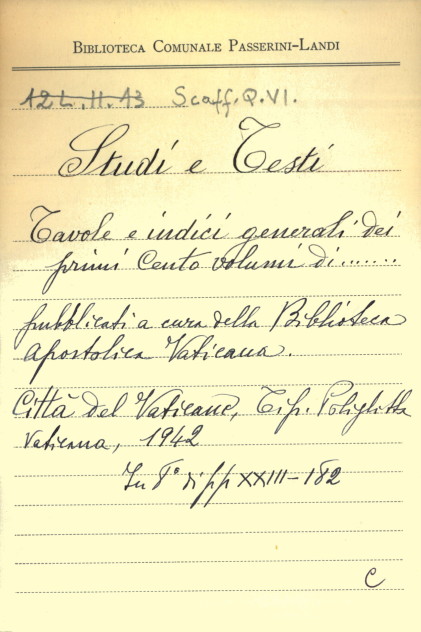 BIBLIOTECA COMUNALE PASSERINI-LANDI
12L.H.13 Scaff.Q.VI.
Studi e Testi
Tavole e indici generali dei
primi cento volumi di.......
pubblicati a cura della Biblioteca
Apostolica Vaticana.
Città del Vaticano, Tip. Poliglotta
Vaticana, 1942
In 8° di pp XXIII-182
C